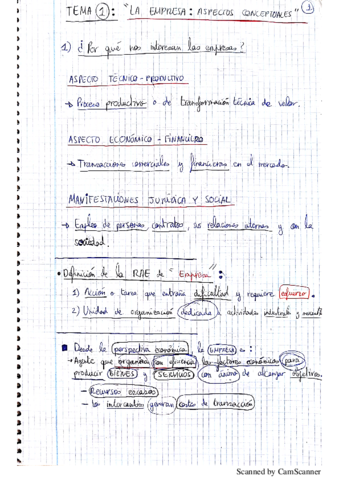 TEMA 1: "LA EMPRESA: ASPECTOS CONCEPTUALES" 1
1) ¿Por qué nos interesan las empresas?
ASPECTO TÉCNICO-PRODUCTIVO
→ Proceso productivo o de transformación técnica de valor.
ASPECTO ECONÓMICO-FINANCIERO
→ Transacciones comerciales y financieras en el mercado.
MANIFESTACIONES JURÍDICA Y SOCIAL
→ Empleo de personas, contratos, relaciones y con la
sociedad.
Definición de la RAE de "Empresa":
1) Acción o tarea que entraña dificultad y requiere esfuerzo.
2) Unidad de organización dedicada a actividades industriales
Desde la perspectiva económica la empresa es:
→ Agente que organiza con eficiencia los factores económicos para
producir BIENES y SERVICIOS con ánimo de alcanzar objetivos.
- Recursos escasos
- Los intercambios generan coste de transacción
Scanned by CamScanner